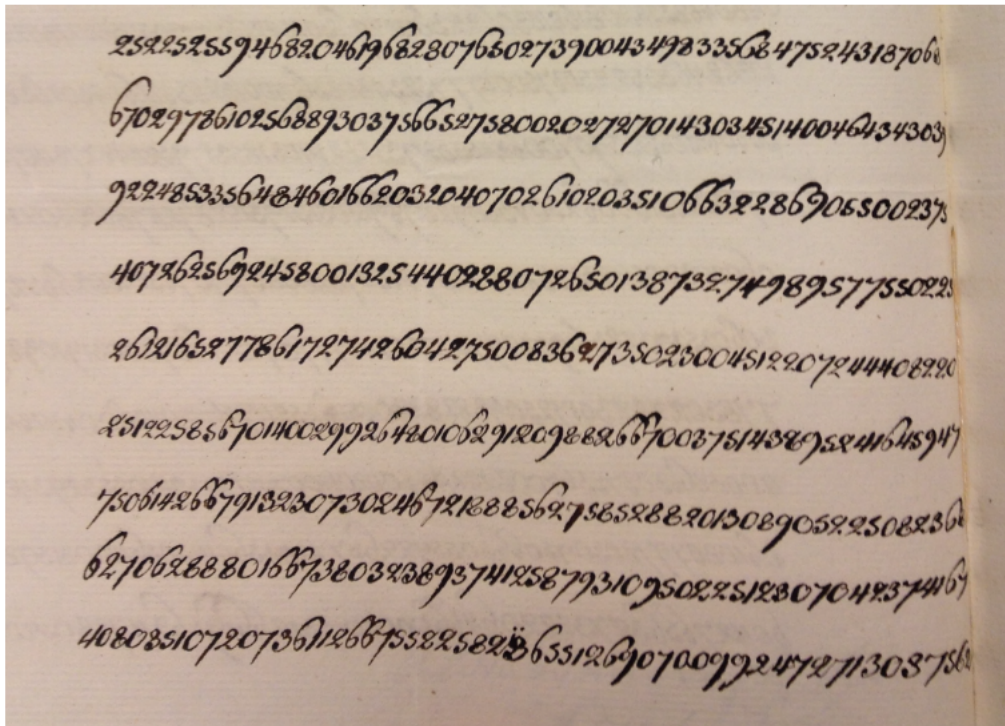 2522525594682046196828076502739004349833568475243187068
670297861025688930375665275800202727014303451400464343039
92248533564846016620320407026102035106632286906550023735
407262569245800132544022807265013873274989577550225
261216527786172742604275008362735023004512207244408220
2512258567014002992648010629120988266700375143895241645947
750614266791323073024672188856275852882013089052250823668
6270628880166738032389374125879310950225123070423744167
408035107207361126675522582836551269070992472713087562